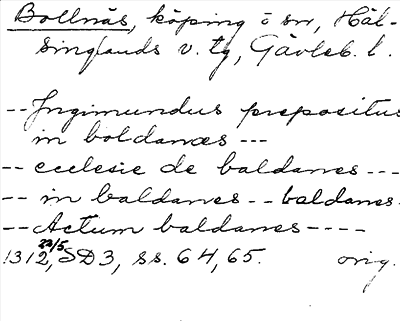 Bollnäs, köping o sn, Häl-
singlands v. tg, Gävleb. l.
-- Ingimundus prepositus
in baldanæs ---
-- ecclesie de baldanes ---
-- in baldanes -- baldanes
-- Actum baldanes ----
1312 22/5, SD3, ss. 64, 65. orig.